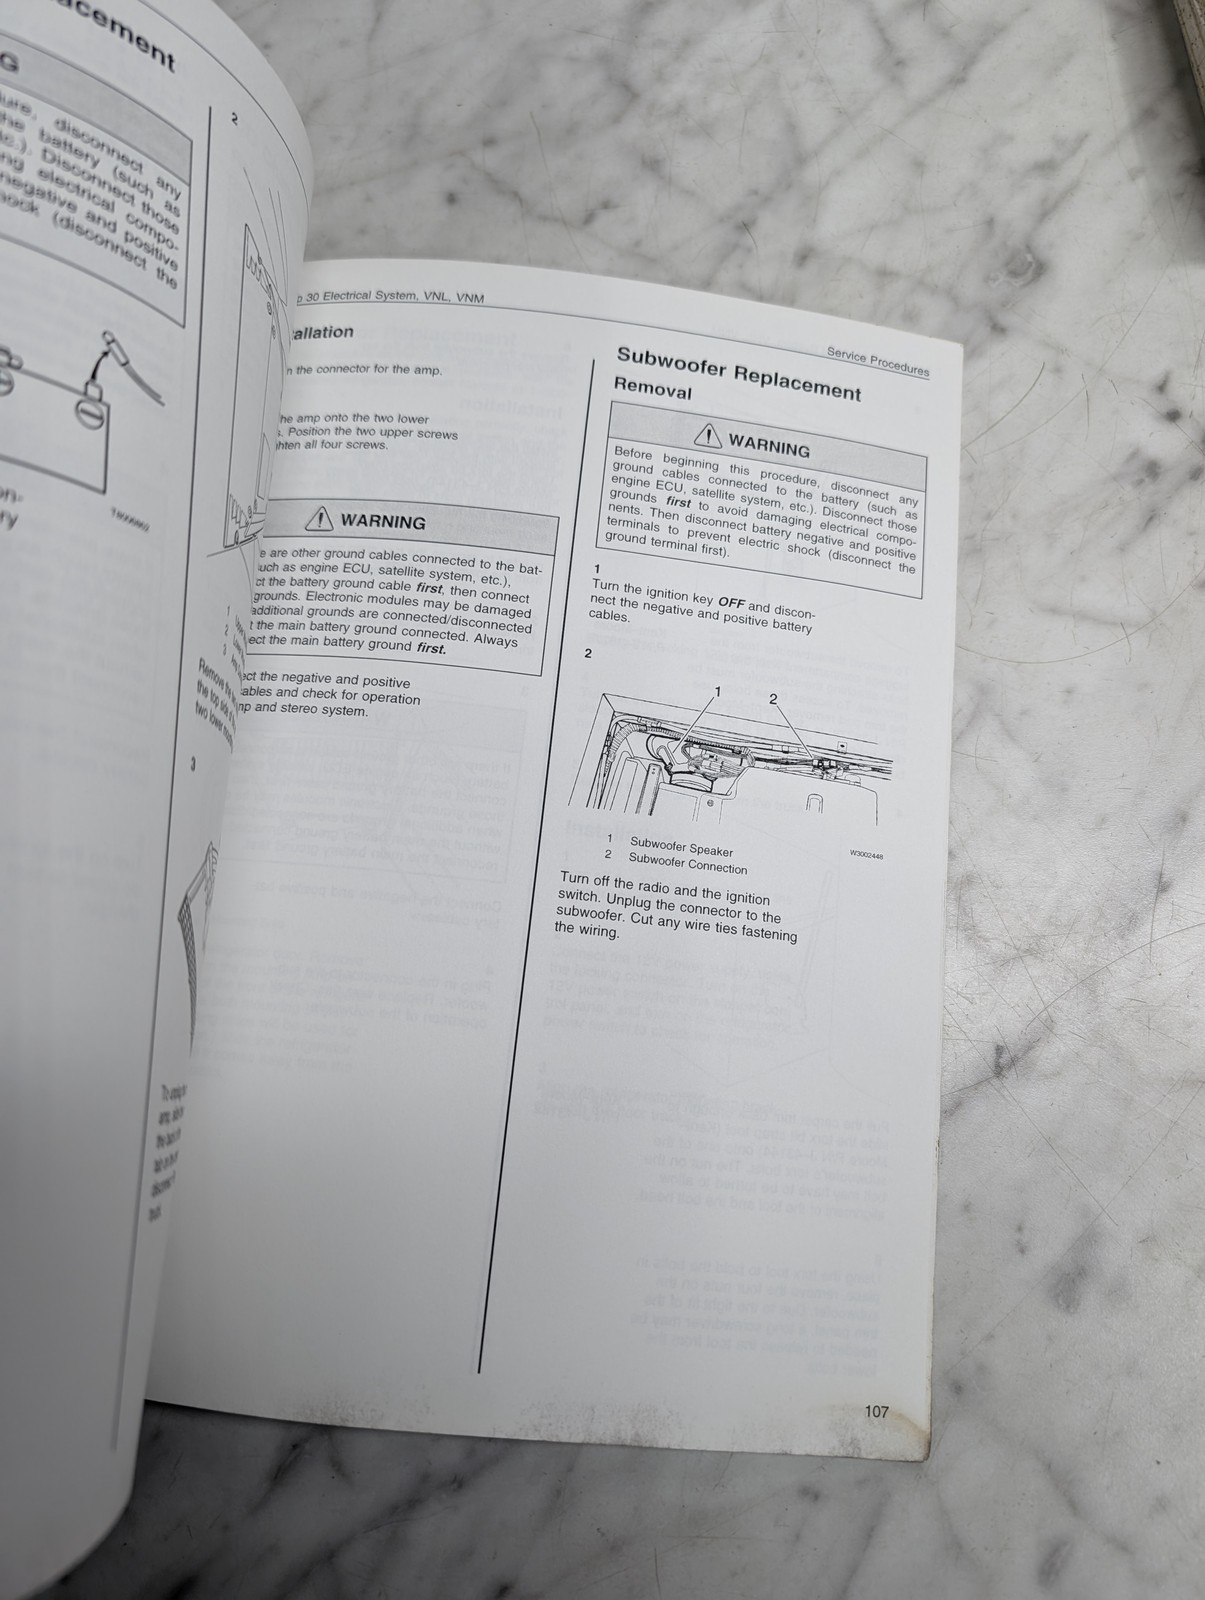 acement
G
disconnect any
the battery (such as
Disconnect those
electrical compo-
negative and positive
(disconnect the
2
1
2
3
Remove the
the top side
two lower
3
30 Electrical System, VNL, VNM
allation
the connector for the amp.
he amp onto the two lower
Position the two upper screws
hten all four screws.
WARNING
e are other ground cables connected to the bat-
uch as engine ECU, satellite system, etc.),
ct the battery ground cable first, then connect
grounds. Electronic modules may be damaged
additional grounds are connected/disconnected
the main battery ground connected. Always
ect the main battery ground first.
ect the negative and positive
ables and check for operation
mp and stereo system.
Service Procedures
Subwoofer Replacement
Removal
WARNING
Before beginning this procedure, disconnect any
ground cables connected to the battery (such as
engine ECU, satellite system, etc.). Disconnect those
grounds first to avoid damaging electrical compo-
nents. Then disconnect battery negative and positive
terminals to prevent electric shock (disconnect the
ground terminal first).
1
Turn the ignition key OFF and discon-
nect the negative and positive battery
cables.
2
1 2
1 Subwoofer Speaker
2 Subwoofer Connection
W3002448
Turn off the radio and the ignition
switch. Unplug the connector to the
subwoofer. Cut any wire ties fastening
the wiring.
107